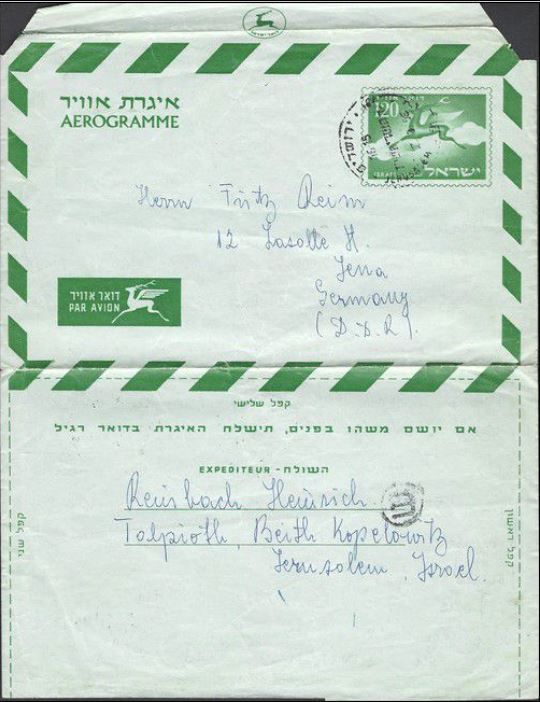 דואר ישראל
איגרת אוויר
AEROGRAMME
דואר אוויר
120
ישראל
ISRAEL
ירושלים
16-15
Herrn Fritz Reim
12 Lasalle
Jena
Germany
(D.D.R).
דואר אוויר
PAR AVION
קפל שלישי
אם יושם משהו בפנים, תישלח האיגרת בדואר רגיל
EXPEDITEUR - השולח
Reisbach Heinrich
Talpioth, Beith Kopelowitz
Jerusalem, Israel.
קפל שני
קפל ראשון